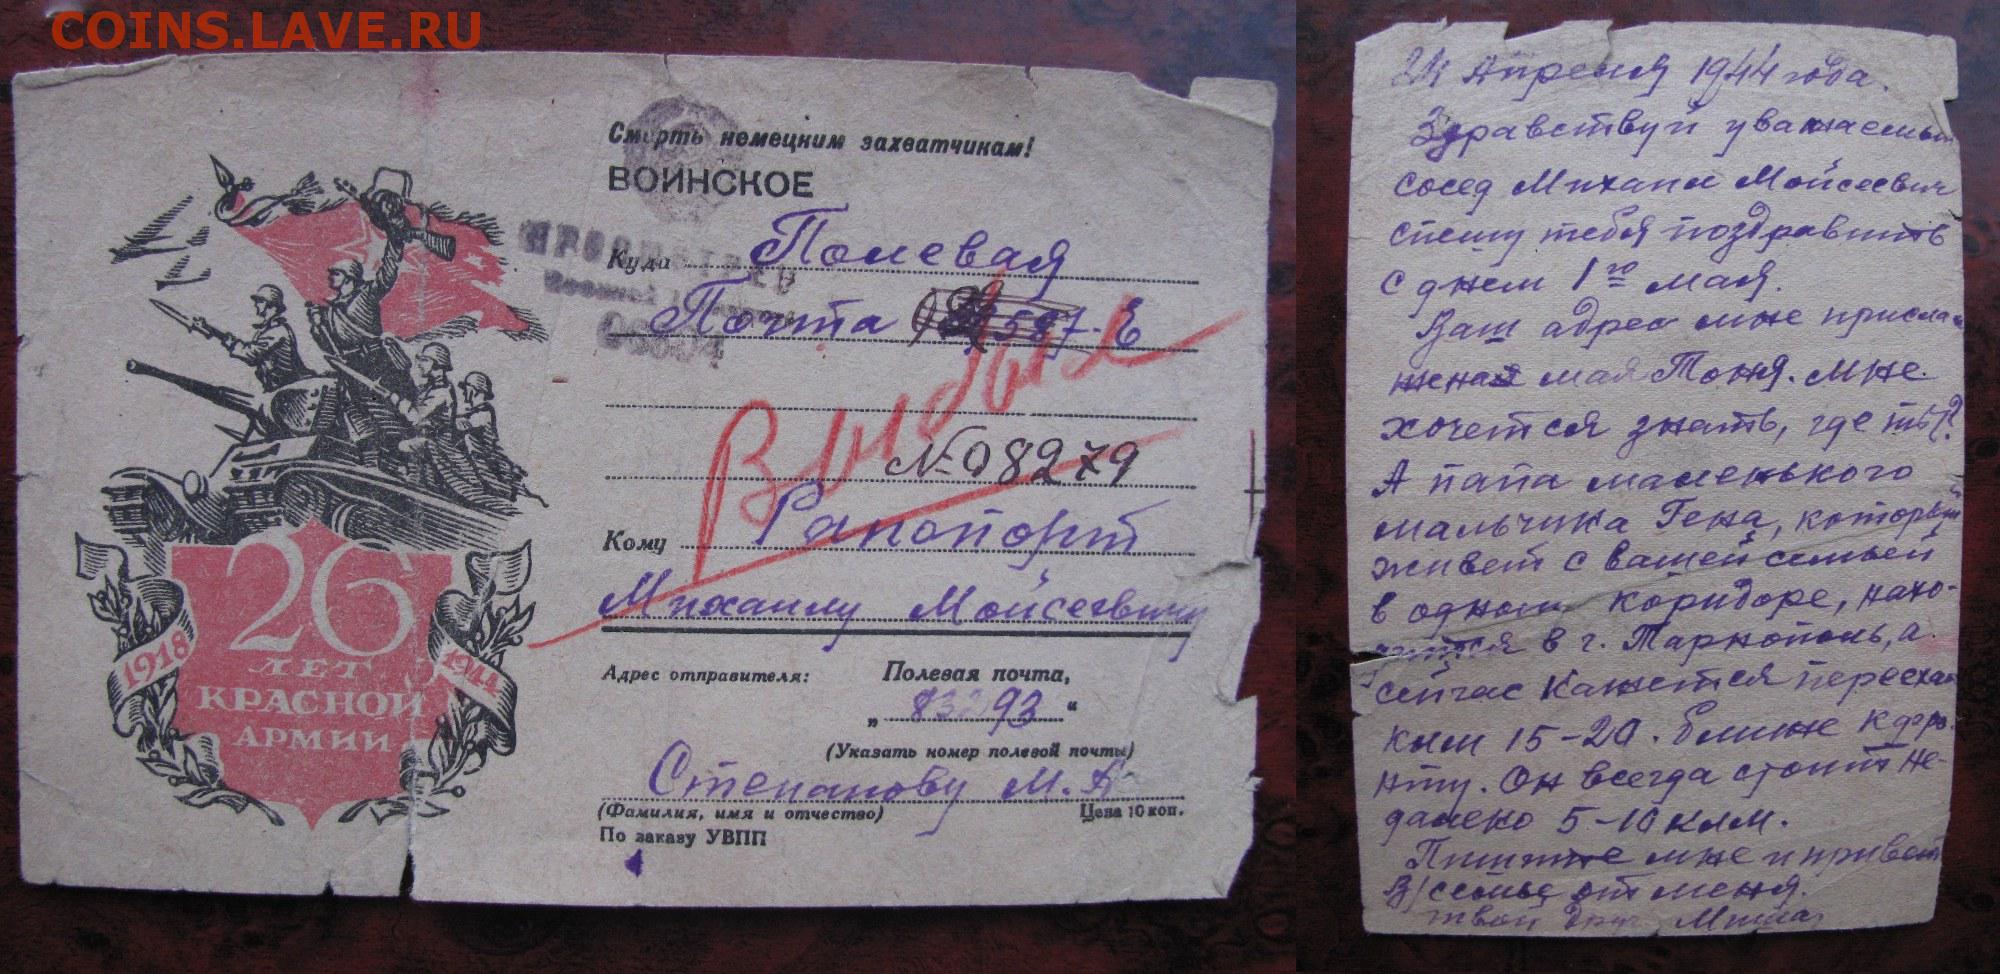 COINS.LAVE.RU
Смерть немецким захватчикам!
ВОИНСКОЕ
ПРОСМОТРЕНО
Военной Цензурой
Куда Полевая
Почта
№ 08279
Кому Рапопорт
Михаилу Мойсеевичу
Адрес отправителя: Полевая почта,
„ 83293 “
(Указать номер полевой почты)
Степанову М. А
(Фамилия, имя и отчество) Цена 10 коп.
По заказу УВПП
26
ЛЕТ
КРАСНОЙ
АРМИИ
1918
1944
24 Апреля 1944 года.
Здравствуй уважаемый
сосед Михаил Мойсеевич
спешу тебя поздравить
с днем 1го мая.
Ваш адрес мне присла
жена мая Тоня. Мне
хочется знать, где ты?
А папа маленького
мальчика Гена, который
живет с вашей семьей
в одном коридоре, нахо-
дится в г. Тарнополь, а
сейчас кажется переехал
клм 15-20. ближе к фро-
нту. Он всегда стоит не-
далеко 5-10 клм.
Пишите мне и привет
В/семье от меня.
твой друг Миша